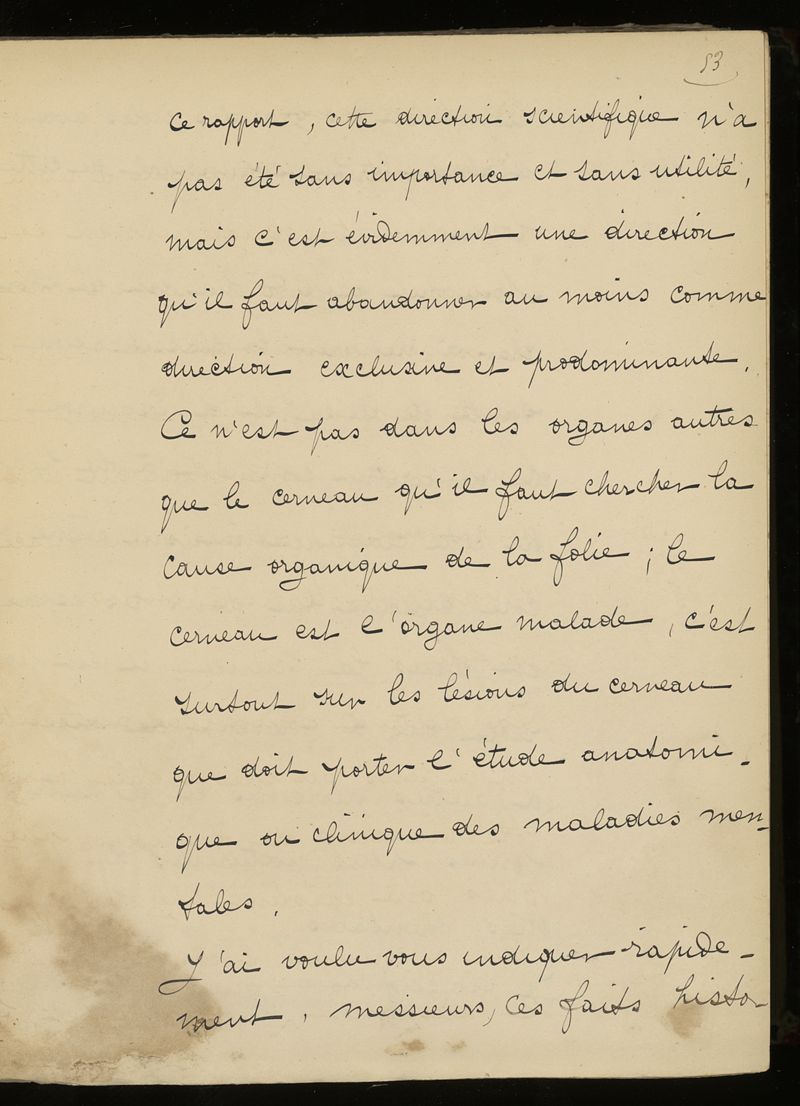 53
ce rapport, cette direction scientifique n'a
pas été sans importance et sans utilité,
mais c'est évidemment une direction
qu'il faut abandonner au moins comme
direction exclusive et prodominante.
Ce n'est pas dans les organes autres
que le cerveau qu'il faut chercher la
cause organique de la folie ; le
cerveau est l'organe malade, c'est
surtout sur les lésions du cerveau
que doit porter l'étude anatomi-
que ou clinique des maladies men-
tales.
J'ai voulu vous indiquer rapide-
ment, messieurs, ces faits histo-